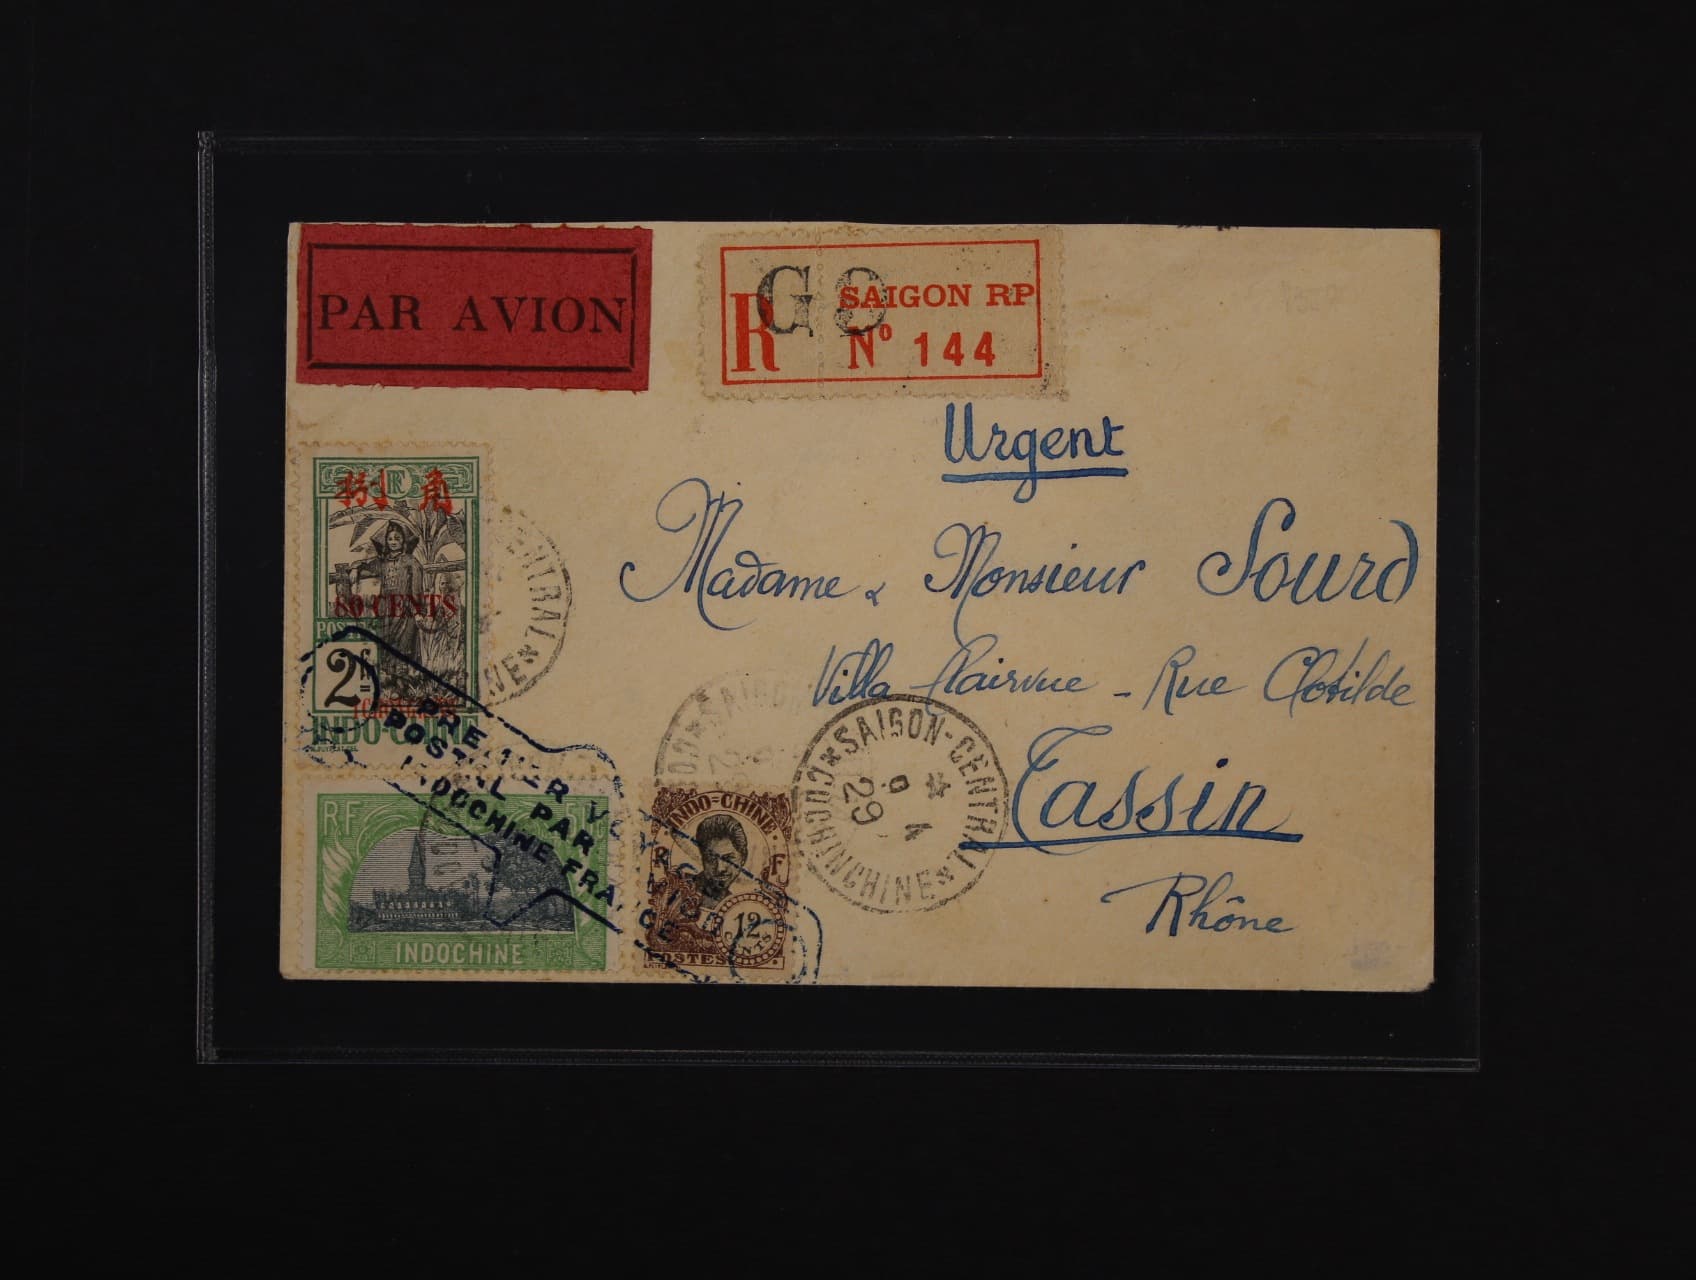 PAR AVION
R G8 SAIGON RP
Nº 144
Urgent
Madame & Monsieur Sourd
Villa Clairvue - Rue Clotilde
Tassin
Rhône
RF
捌角
80 CENTS
POSTES
2f=
INDO-CHINE
CENTRAL
PREMIER VOYAGE
POSTAL PAR AVION
INDOCHINE FRANCE
RF
INDOCHINE
INDO-CHINE
R F
12 CENTS
POSTES
SAIGON
29
SAIGON-CENTRAL
4
9
29
COCHINCHINE